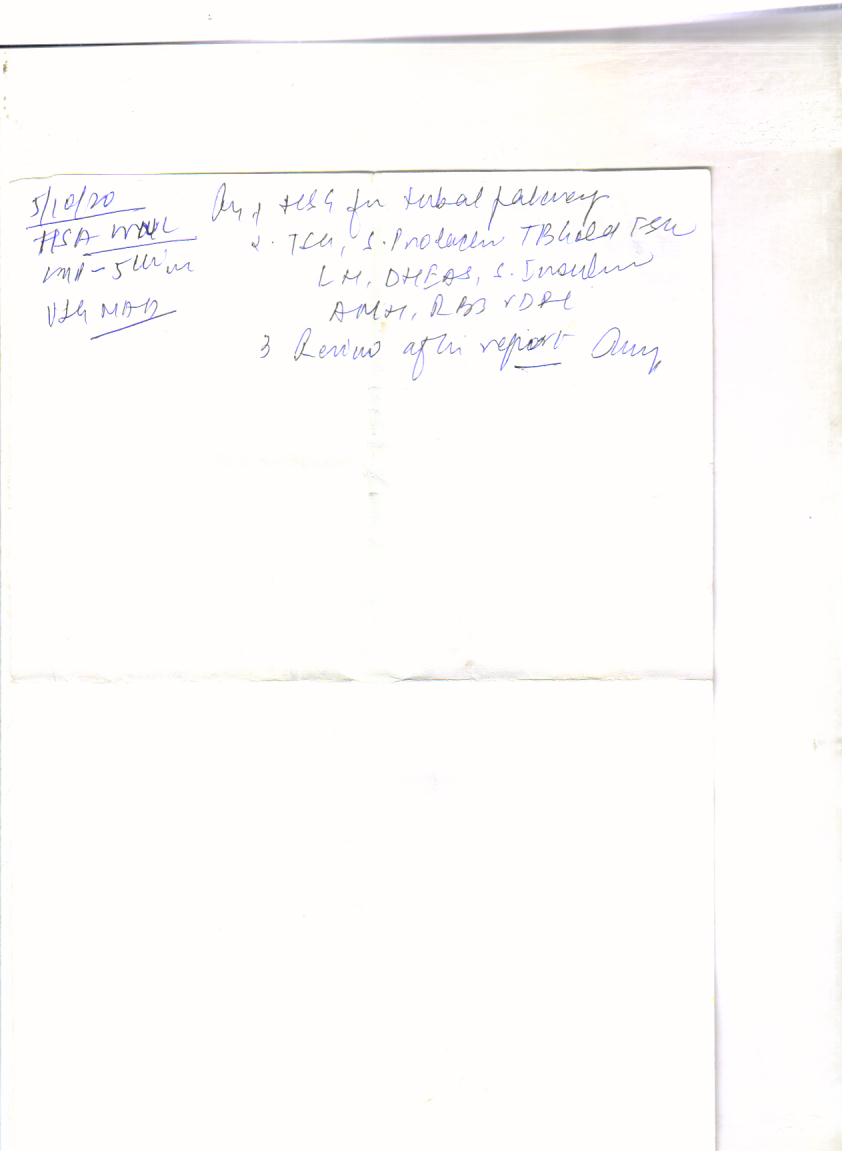 5/10/20
HSA WNL
LMP - 5th
USG NAD
1 HSG for tubal patency
2. TSH, S. Prolactin TB Gold FSH
LH, DHEAS, S. Insulin
AMH, RBS VDRL
3 Review after report